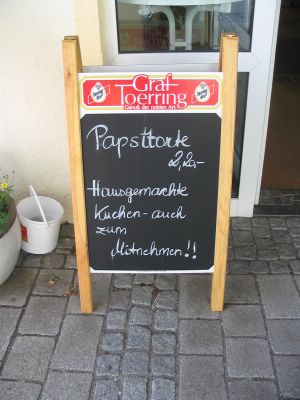 Graf
Toerring
Genuß der noblen Art
Papsttorte
2,20,-
Hausgemachte
Kuchen - auch
zum
Mitnehmen!!